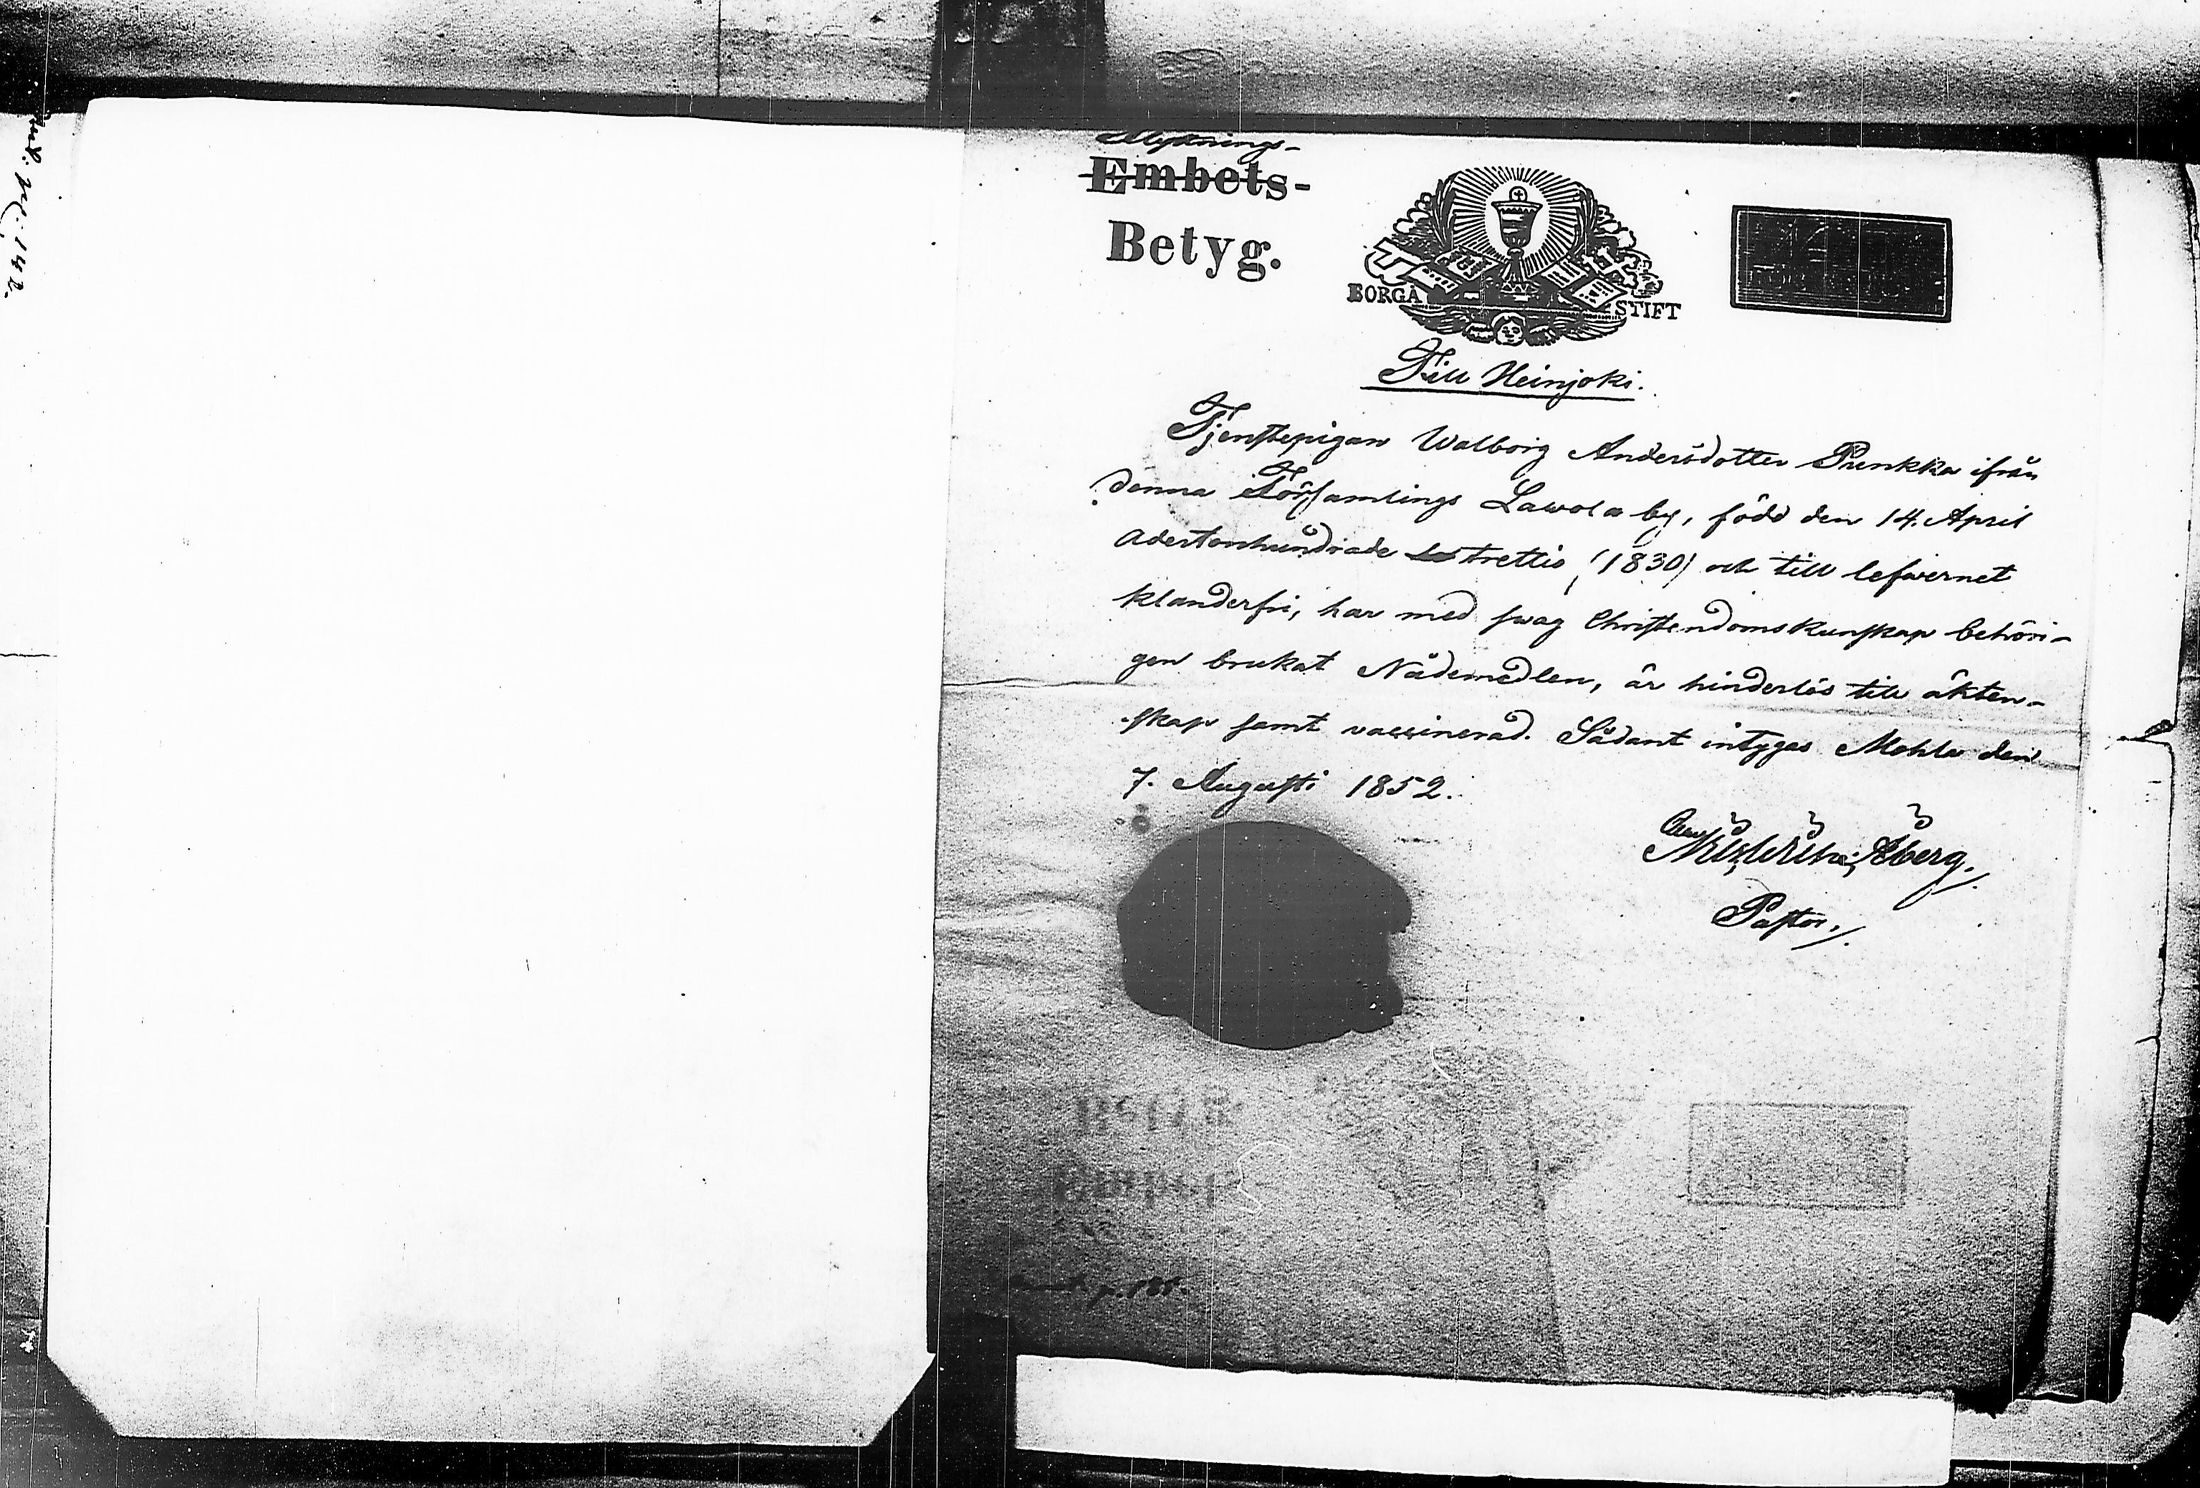 p. 142.
Flyttnings-
Embets-
Betyg.
BORGÅ STIFT
Till Heinjoki.
Tjenstepigan Walborg Andersdotter Punkka ifrån
denna Församlings Lawola by, född den 14. April
adertonhundrade trettio (1830) och till lefwernet
klanderfri, har med swag Christendomskunskap behöri-
gen brukat Nådemedlen, är hinderlös till äkten-
skap samt vaccinerad. Sådant intygas Mohla den
7. Augusti 1852.
Åberg.
Pastor.